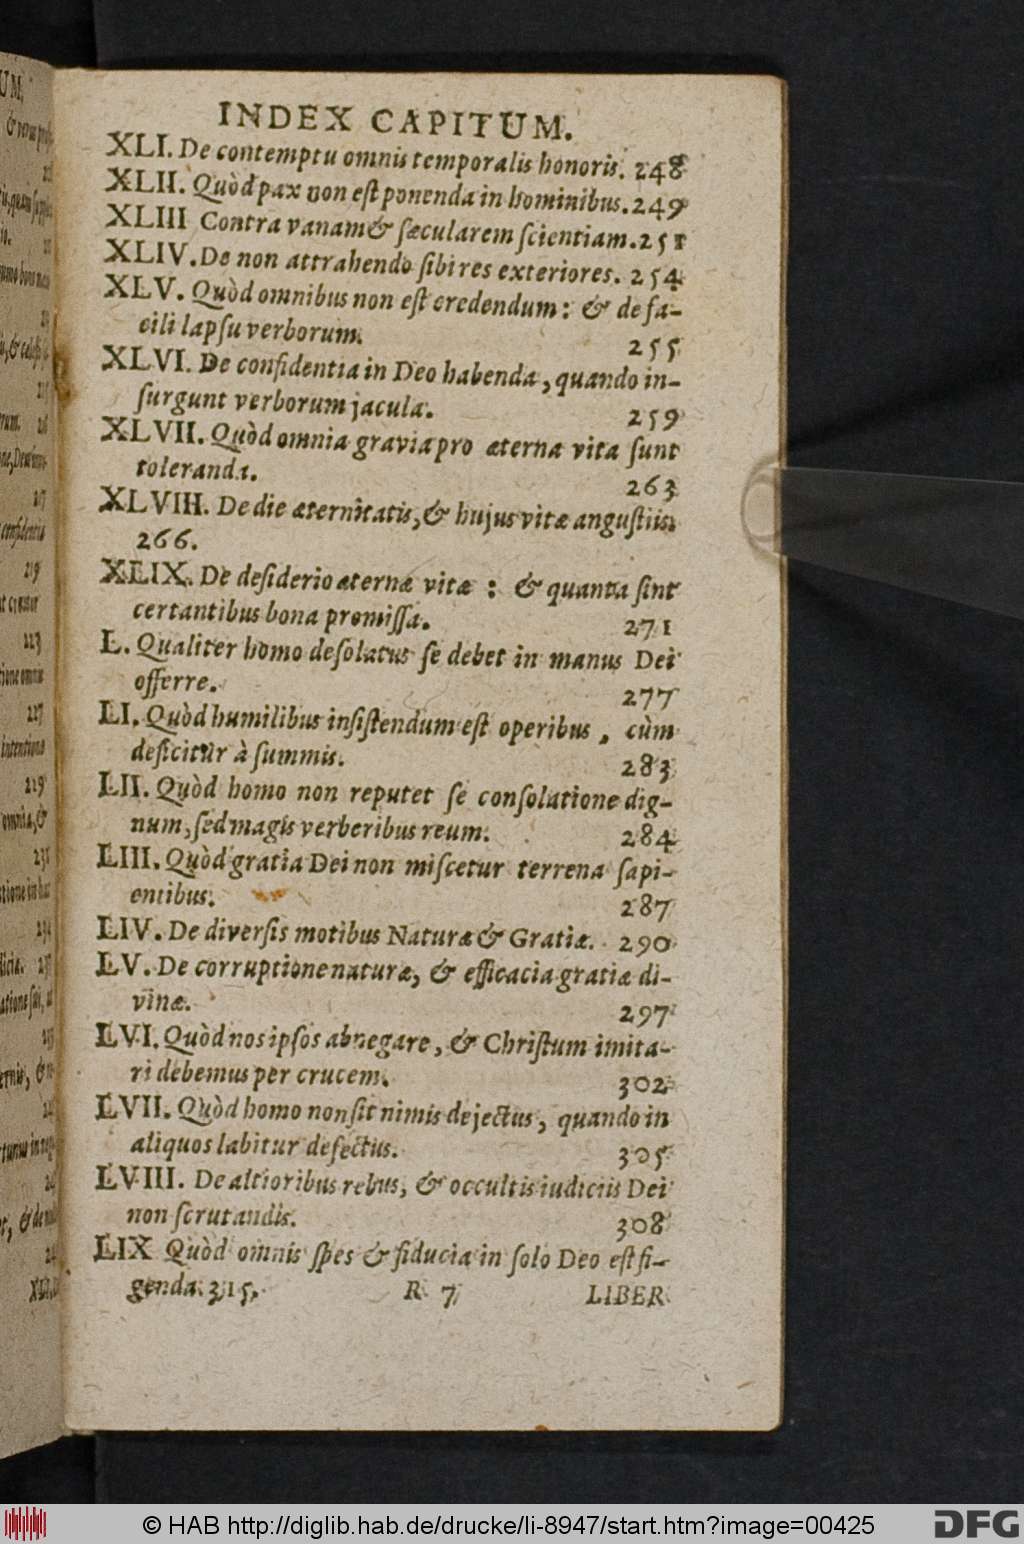 INDEX CAPITUM.
XLI. De contemptu omnis temporalis honoris. 248
XLII. Quòd pax non est ponenda in hominibus. 249
XLIII Contra vanam & sæcularem scientiam. 251
XLIV. De non attrahendo sibi res exteriores. 254
XLV. Quòd omnibus non est credendum: & de fa-
cili lapsu verborum. 255
XLVI. De confidentia in Deo habenda, quando in-
surgunt verborum jacula. 259
XLVII. Quòd omnia gravia pro æterna vita sunt
toleranda. 263
XLVIII. De die æternitatis, & hujus vitæ angustiis.
266.
XLIX. De desiderio æternæ vitæ : & quanta sint
certantibus bona promissa. 271
L. Qualiter homo desolatus se debet in manus Dei
offerre. 277
LI. Quòd humilibus insistendum est operibus, cùm
deficitur à summis. 283
LII. Quòd homo non reputet se consolatione dig-
num, sed magis verberibus reum. 284
LIII. Quòd gratia Dei non miscetur terrena sapi-
entibus. 287
LIV. De diversis motibus Naturæ & Gratiæ. 290
LV. De corruptione naturæ, & efficacia gratiæ di-
vinæ. 297
LVI. Quòd nos ipsos abnegare, & Christum imita-
ri debemus per crucem. 302
LVII. Quòd homo non sit nimis dejectus, quando in
aliquos labitur defectus. 305
LVIII. De altioribus rebus, & occultis iudiciis Dei
non scrutandis. 308
LIX Quòd omnis spes & fiducia in solo Deo est fi-
genda. 315. R 7 LIBER
© HAB http://diglib.hab.de/drucke/li-8947/start.htm?image=00425
DFG